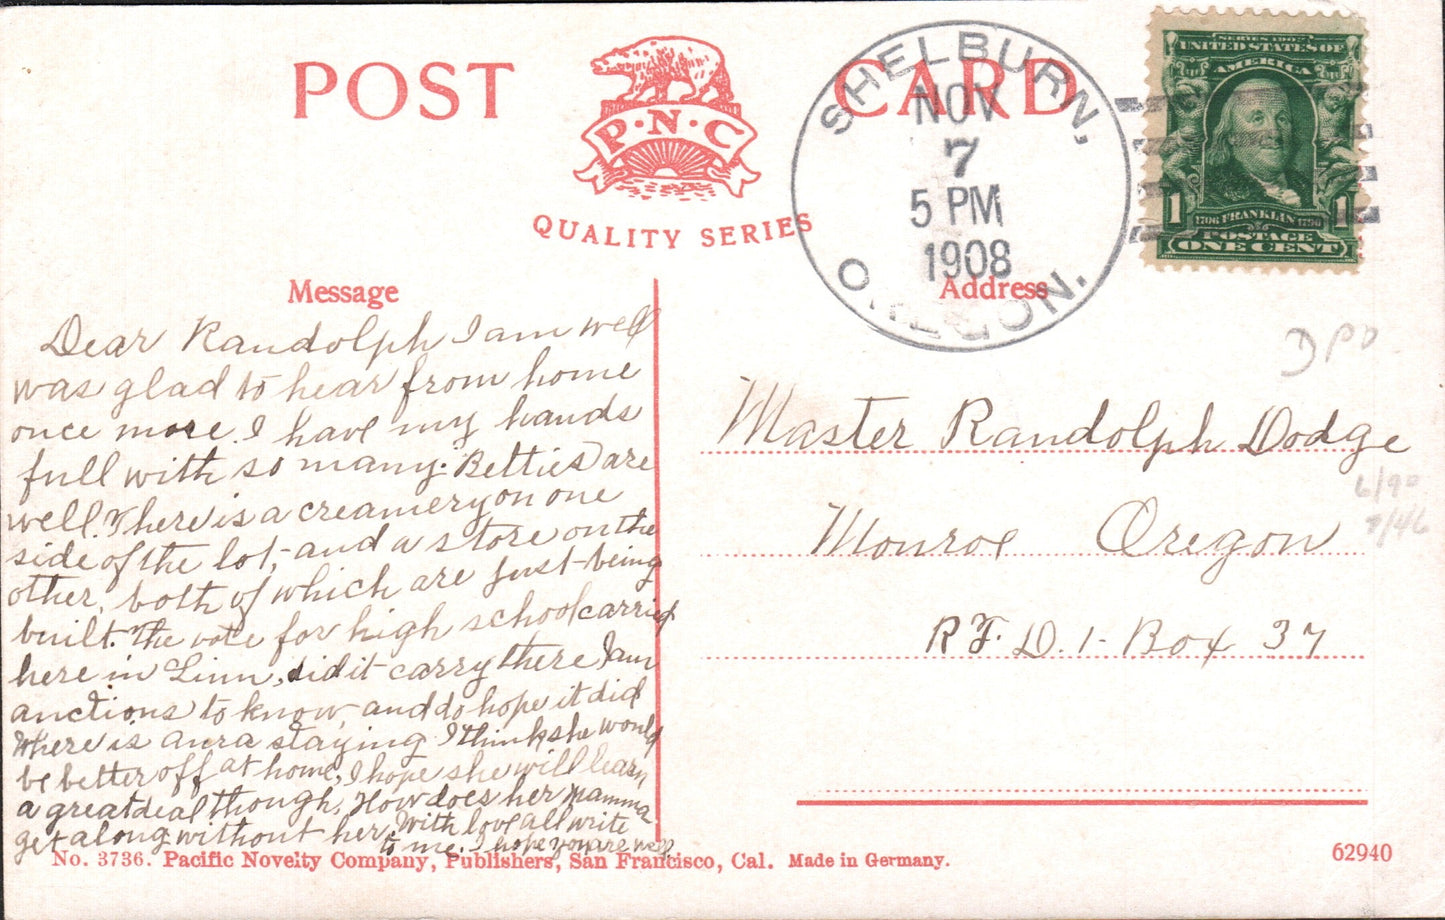 POST CARD
P·N·C
QUALITY SERIES
SHELBURN,
NOV
7
5 PM
1908
OREGON.
SERIES 1902
UNITED STATES OF
AMERICA
1 1
1706 FRANKLIN 1790
POSTAGE
ONE CENT
Message
Dear Randolph I am well
was glad to hear from home
once more. I have my hands
full with so many. Betties are
well. There is a creamery on one
side of the lot, and a store on the
other, both of which are just being
built. The vote for high school carried
here in Linn, did it carry there I am
anctions to know, and do hope it did
Where is staying I think she would
be better off at home, I hope she will learn
a great deal though, How does her Mamma
get along without her, With love all write
to me. I hope you are well
Address
DPO
Master Randolph Dodge
6/90
7/46
Monroe Oregon
R.F.D. 1 - Box 37
No. 3736. Pacific Novelty Company, Publishers, San Francisco, Cal. Made in Germany.
62940